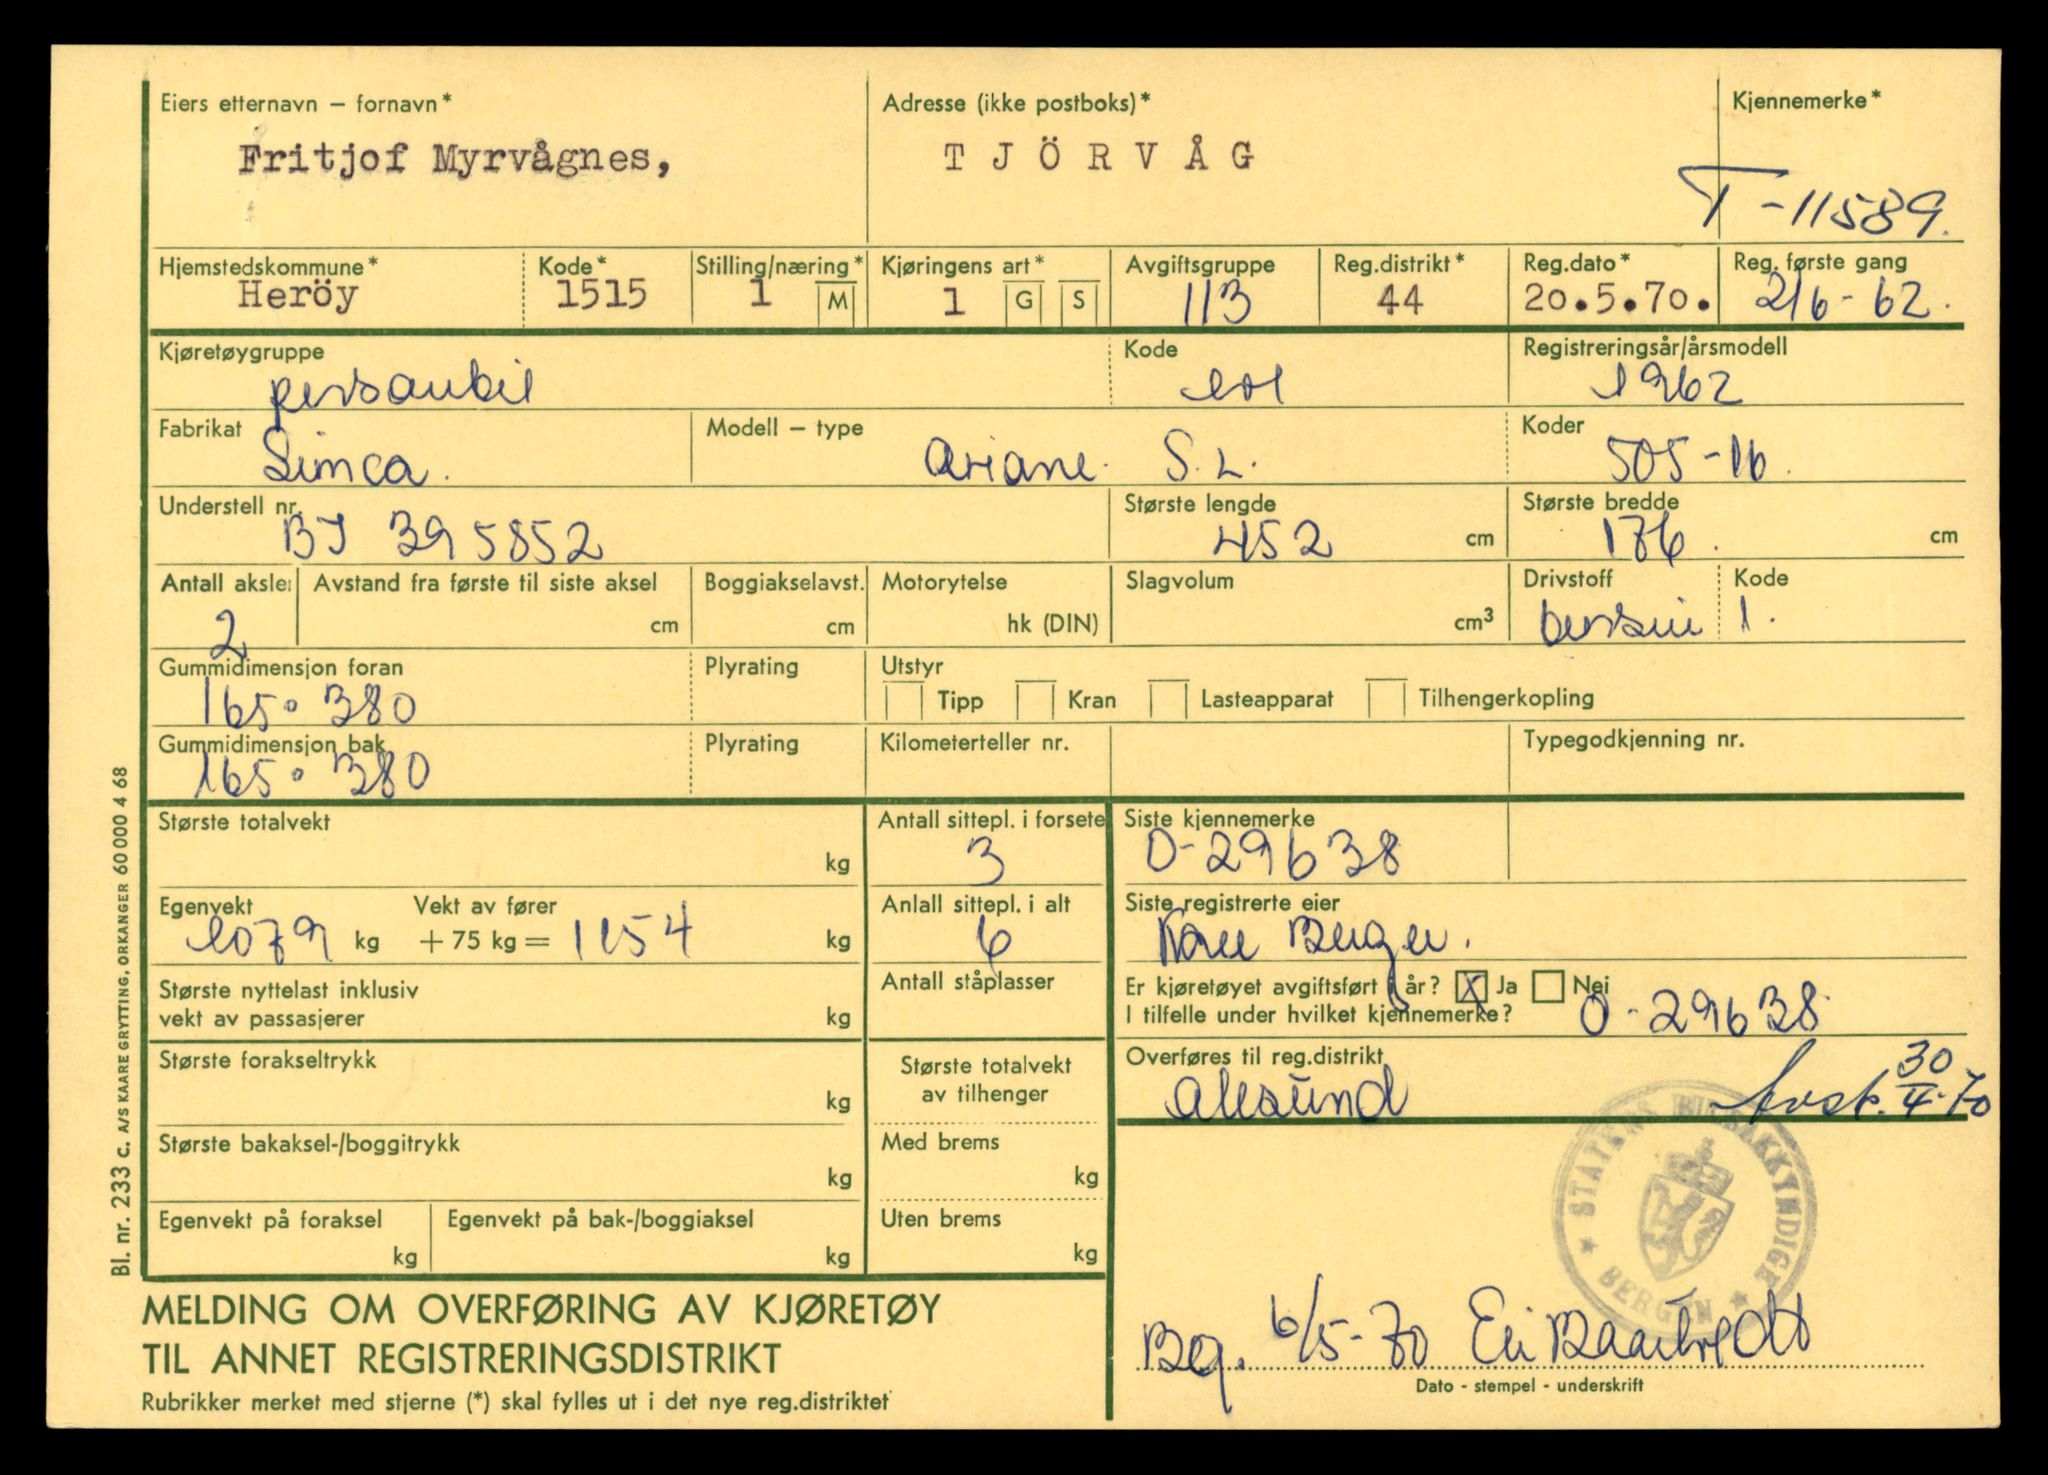 Eiers etternavn – fornavn*
Fritjof Myrvågnes,
Adresse (ikke postboks)*
TJÖRVÅG
Kjennemerke*
T-11589.
Hjemstedskommune*
Heröy
Kode*
1515
Stilling/næring*
1 M
Kjøringens art*
1 G S
Avgiftsgruppe
113
Reg.distrikt*
44
Reg.dato*
20.5.70.
Reg. første gang
2/6-62.
Kjøretøygruppe
personbil
Kode
101
Registreringsår/årsmodell
1962
Fabrikat
Simca.
Modell – type
Ariane. S.L.
Koder
505-16.
Understell nr.
BJ 395852
Største lengde
452 cm
Største bredde
176. cm
Antall aksler
2
Avstand fra første til siste aksel
cm
Boggiakselavst.
cm
Motorytelse
hk (DIN)
Slagvolum
cm³
Drivstoff
bensin
Kode
1.
Gummidimensjon foran
165 · 380
Plyrating
Utstyr
Tipp Kran Lasteapparat Tilhengerkopling
Gummidimensjon bak
165 · 380
Plyrating
Kilometerteller nr.
Typegodkjenning nr.
Største totalvekt
kg
Antall sittepl. i forsete
3
Siste kjennemerke
O-29638
Egenvekt
1079 kg
Vekt av fører
+ 75 kg = 1154 kg
Anlall sittepl. i alt
6
Siste registrerte eier
Kåre Berger.
Største nyttelast inklusiv
vekt av passasjerer
kg
Antall ståplasser
Er kjøretøyet avgiftsført i år? X Ja Nei
I tilfelle under hvilket kjennemerke? O-29638
Største forakseltrykk
kg
Største totalvekt
av tilhenger
Overføres til reg.distrikt
Ålesund
Avsk. 30/4-70
Største bakaksel-/boggitrykk
kg
Med brems
kg
Egenvekt på foraksel
kg
Egenvekt på bak-/boggiaksel
kg
Uten brems
kg
STATENS BILSAKKYNDIGE
* BERGEN *
Bg. 6/5-70
Dato - stempel - underskrift
MELDING OM OVERFØRING AV KJØRETØY
TIL ANNET REGISTRERINGSDISTRIKT
Rubrikker merket med stjerne (*) skal fylles ut i det nye reg.distriktet
Bl. nr. 233 c. A/S KAARE GRYTTING, ORKANGER 60 000 4 68